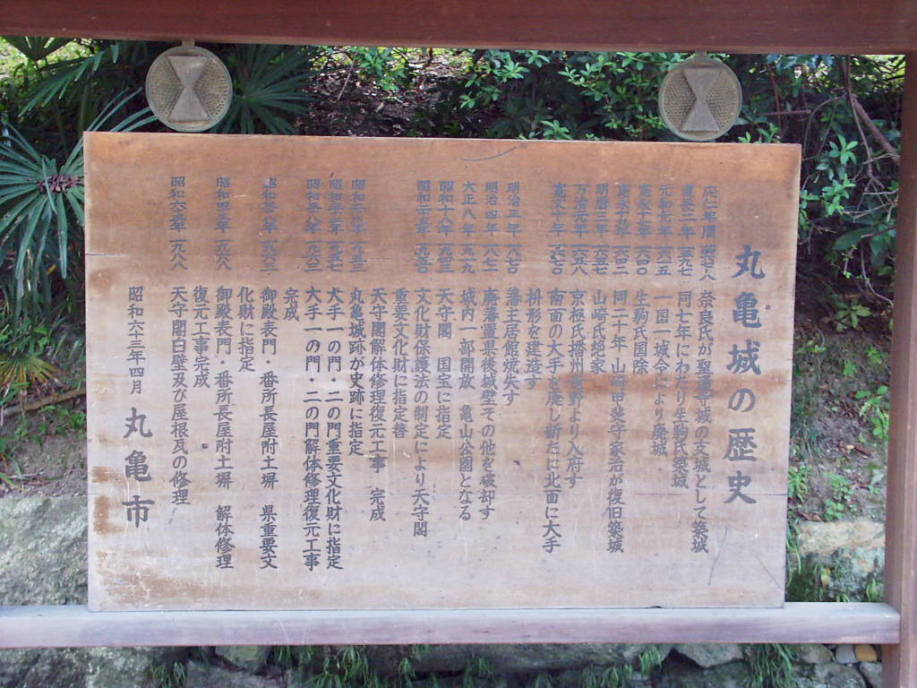 丸亀城の歴史
応仁年間 奈良氏が聖通寺城の支城として築城
慶長二年 一五九七 同七年にわたり生駒氏築城
元和元年 一六一五 一国一城令により廃城
寛永十七年 一六四〇 生駒氏国除
同二十年 山崎甲斐守家治が復旧築城
明暦三年 一六五七 山崎氏絶家
万治元年 一六五八 京極氏播州龍野より入府す
寛文十年 一六七〇 南面の大手を廃し新たに北面に大手
枡形を建造す
明治二年 藩主居館焼失す
明治四年 一八七一 廃藩置県後城壁その他を破却す
大正八年 一九一九 城内一部開放 亀山公園となる
昭和十八年 一九四三 天守閣 国宝に指定
昭和二十五年 一九五〇 文化財保護法の制定により天守閣
重要文化財に指定替
天守閣解体修理復元工事 完成
昭和二十八年 一九五三 丸亀城跡が史跡に指定
昭和三十二年 一九五七 大手一の門・二の門重要文化財に指定
昭和三十八年 一九六三 大手一の門・二の門解体修理復元工事
完成
昭和三十八年 一九六三 御殿表門・番所長屋附土塀 県重要文
化財に指定
昭和四十三年 一九六八 御殿表門・番所長屋附土塀 解体修理
復元工事完成
昭和六十三年 一九八八 天守閣白壁及び屋根瓦の修理
昭和六三年四月 丸亀市